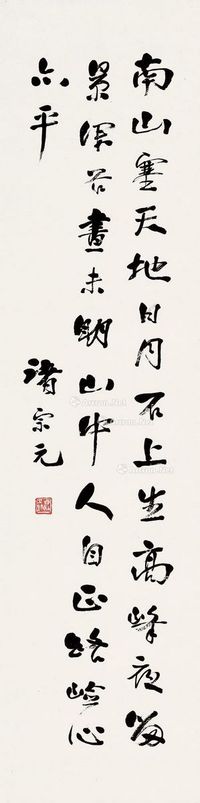 南山塞天地日月石上生高峰夜留
景深谷晝未明山中人自正路險心
亦平
諸宗元